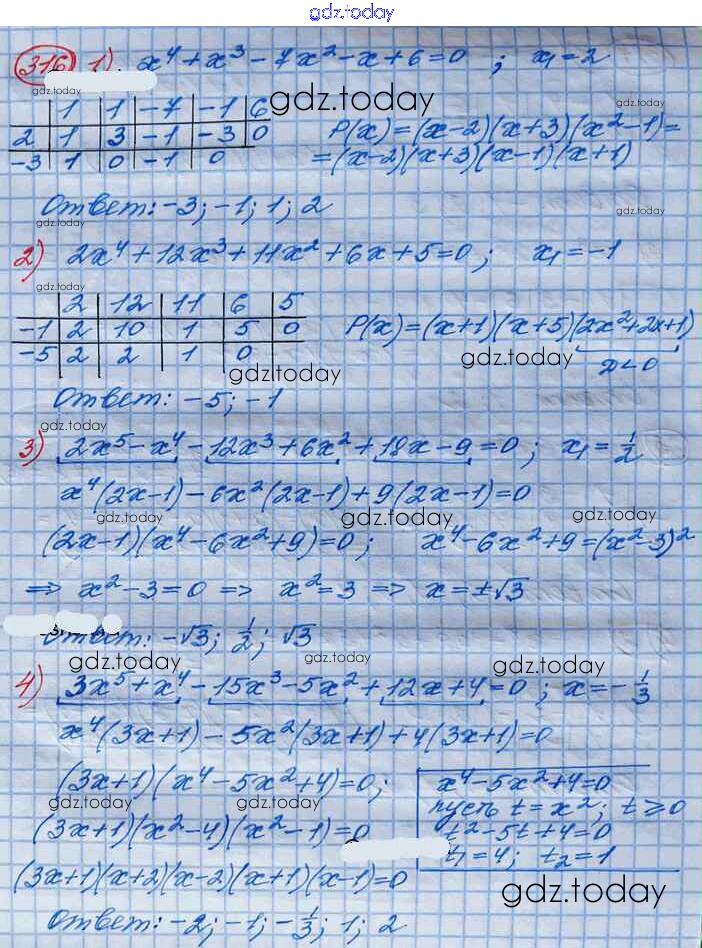 gdz.today
316 1) x⁴ + x³ - 7x² - x + 6 = 0 ; x₁ = 2
gdz.today
1 1 -7 -1 6
gdz.today
gdz.today
2 1 3 -1 -3 0
P(x) = (x-2)(x+3)(x²-1) =
-3 1 0 -1 0
= (x-2)(x+3)(x-1)(x+1)
Ответ: -3; -1; 1; 2
gdz.today
gdz.today
2) 2x⁴ + 12x³ + 11x² + 6x + 5 = 0 ; x₁ = -1
gdz.today
2 12 11 6 5
-1 2 10 1 5 0
P(x) = (x+1)(x+5)(2x²+2x+1)
-5 2 2 1 0
gdz.today
D < 0
gdz.today
Ответ: -5; -1
gdz.today
3) 2x⁵ - x⁴ - 12x³ + 6x² + 18x - 9 = 0 ; x₁ = 1/2
x⁴(2x-1) - 6x²(2x-1) + 9(2x-1) = 0
gdz.today
gdz.today
gdz.today
(2x-1)(x⁴-6x²+9) = 0 ; x⁴-6x²+9 = (x²-3)²
=> x²-3 = 0 => x² = 3 => x = ±√3
Ответ: -√3; 1/2; √3
gdz.today
gdz.today
gdz.today
4) 3x⁵ + x⁴ - 15x³ - 5x² + 12x + 4 = 0 ; x = -1/3
x⁴(3x+1) - 5x²(3x+1) + 4(3x+1) = 0
(3x+1)(x⁴-5x²+4) = 0;
x⁴-5x²+4 = 0
gdz.today
gdz.today
пусть t = x²; t ≥ 0
(3x+1)(x²-4)(x²-1) = 0
t²-5t+4 = 0
t₁ = 4; t₂ = 1
(3x+1)(x+2)(x-2)(x+1)(x-1) = 0
gdz.today
Ответ: -2; -1; -1/3; 1; 2